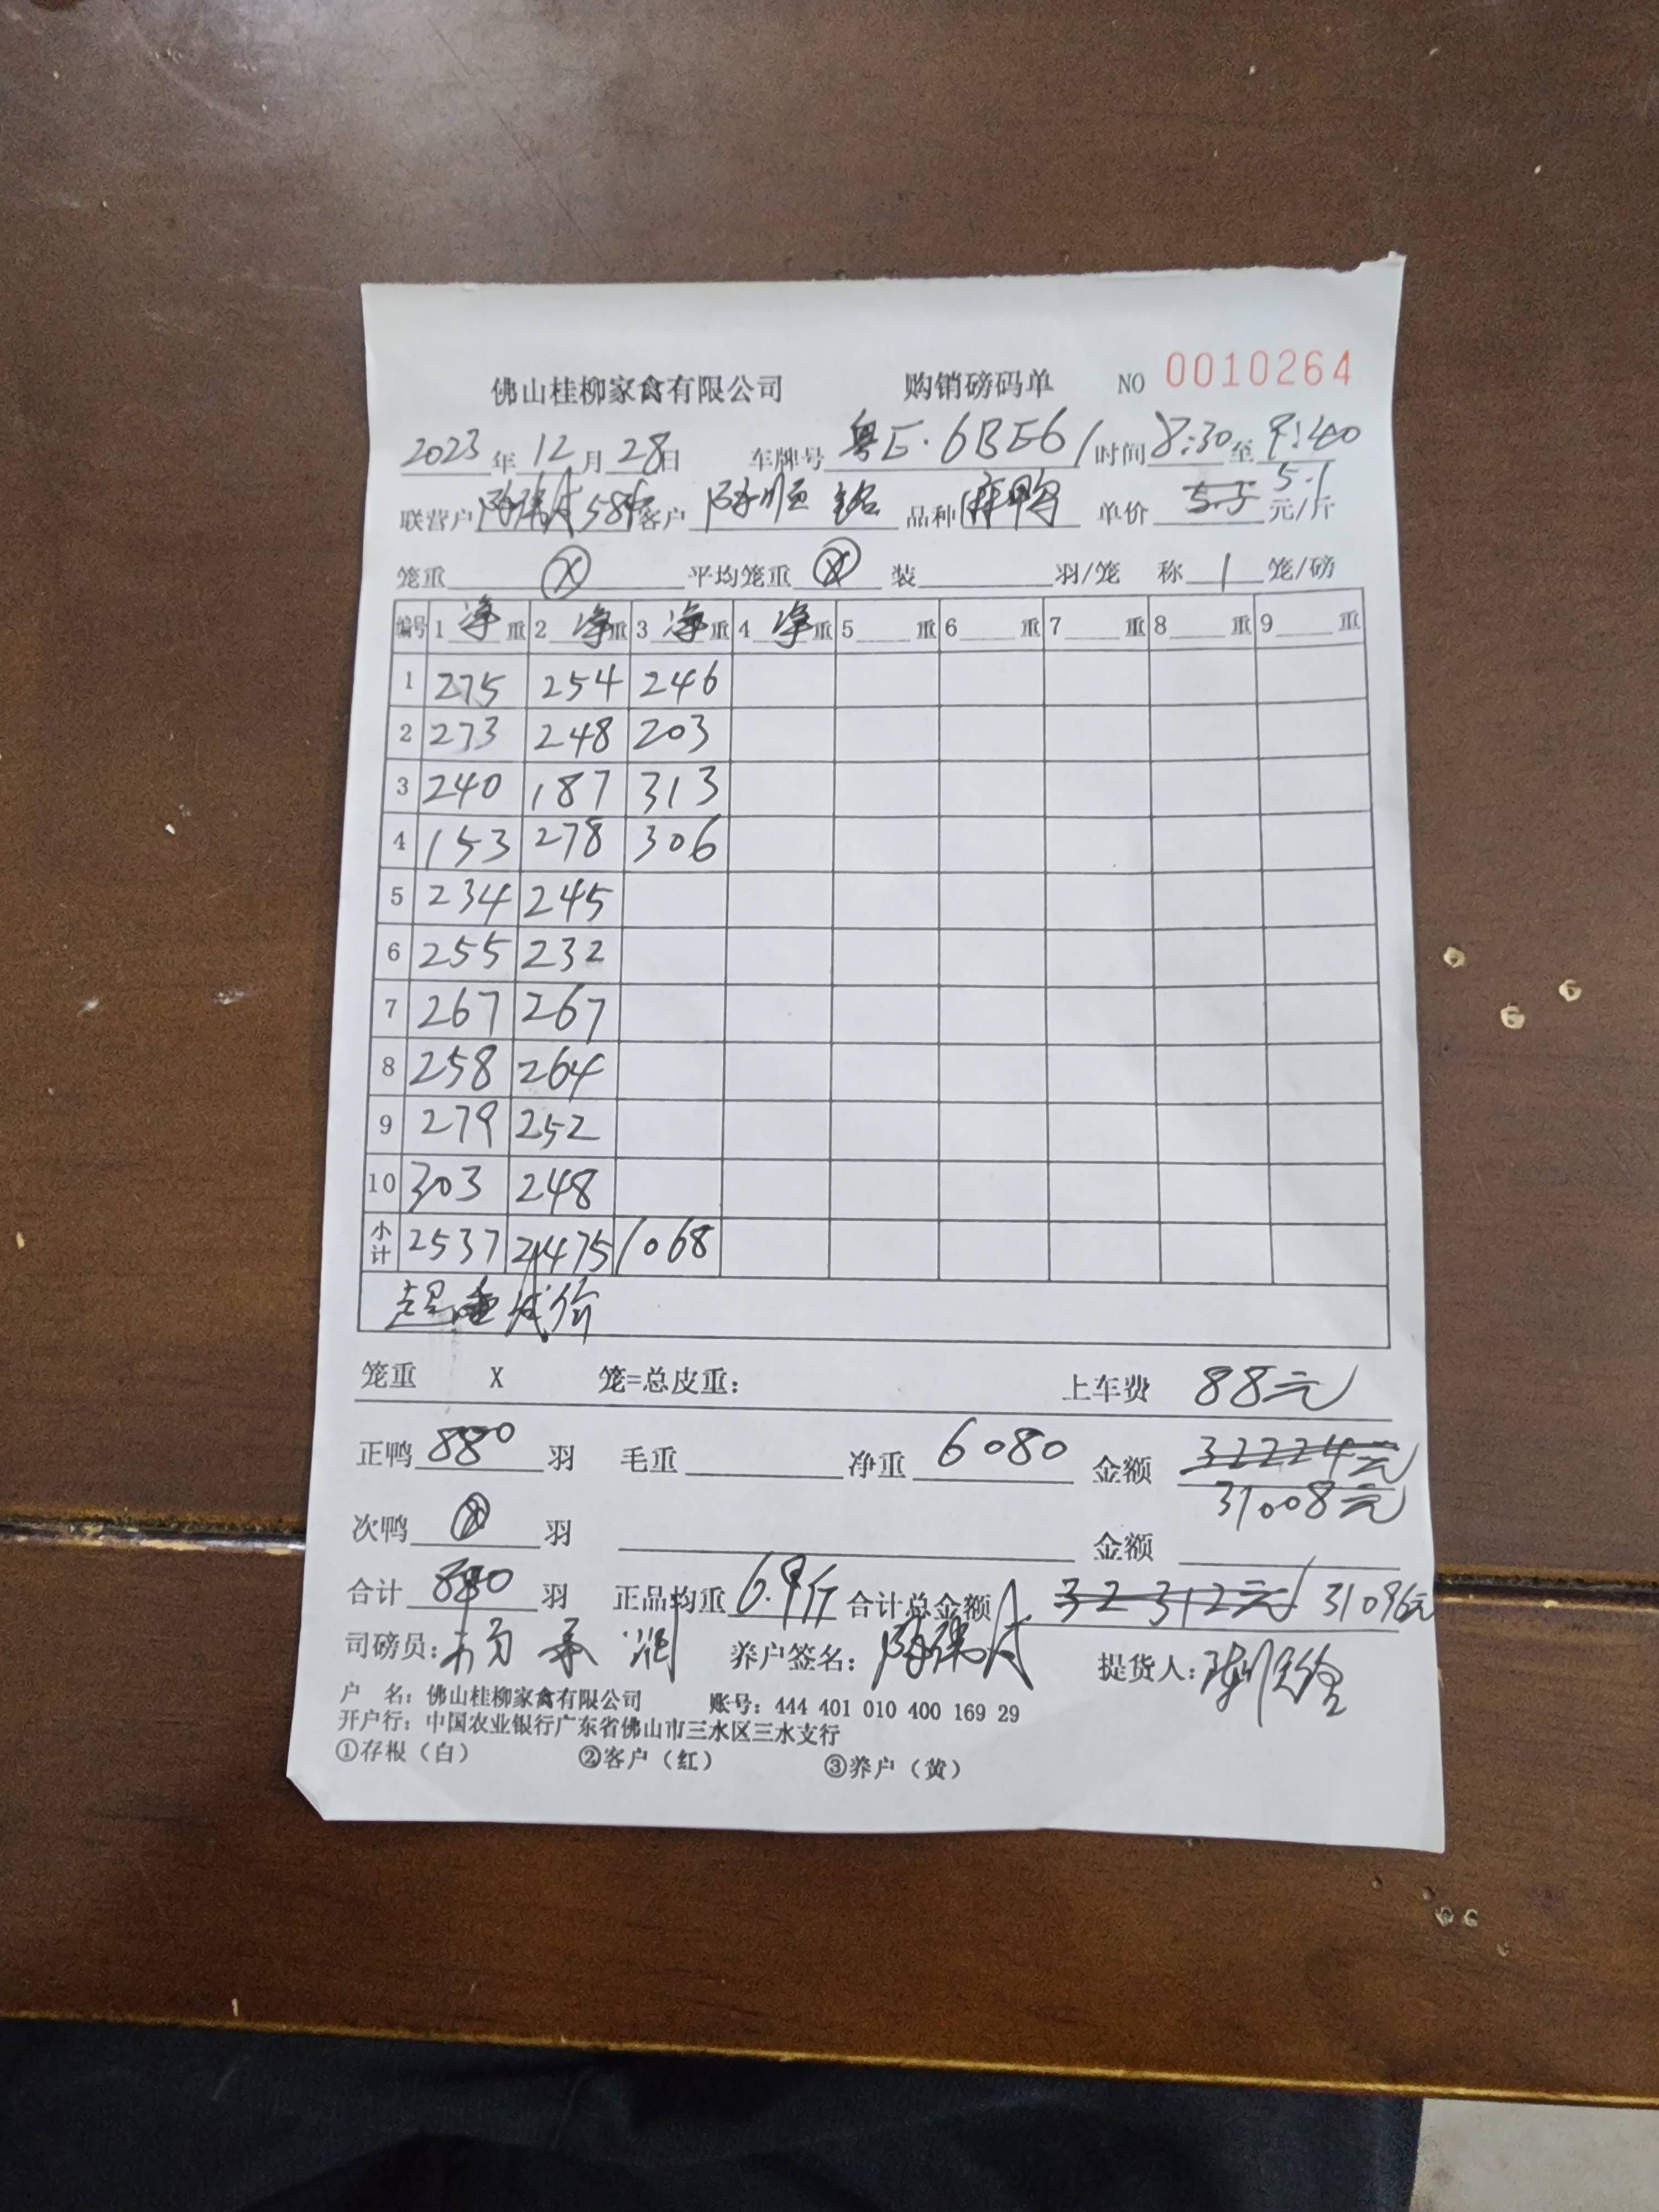 佛山桂柳家禽有限公司 购销磅码单 NO 0010264
2023年12月28日 车牌号 粤E·6BE61 时间8:30至9:40
联营户 客户 陈顺铭 品种 麻鸭 单价 5.1 元/斤
笼重 ⓧ 平均笼重 ⓧ 装 羽/笼 称 1 笼/磅
编号 1 净 重 2 净 重 3 净 重 4 净 重 5 重 6 重 7 重 8 重 9 重
1 275 254 246
2 273 248 203
3 240 187 313
4 153 278 306
5 234 245
6 255 232
7 267 267
8 258 264
9 279 252
10 303 248
小计 2537 2475 1068
超重减价
笼重 X 笼=总皮重: 上车费 88元
正鸭 880 羽 毛重 净重 6080 金额 32224元
31008元
次鸭 ⓧ 羽 金额
合计 880 羽 正品均重 6.9斤 合计总金额 32312元 31096元
司磅员: 养户签名: 提货人:
户 名: 佛山桂柳家禽有限公司 账号: 444 401 010 400 169 29
开户行: 中国农业银行广东省佛山市三水区三水支行
①存根(白) ②客户(红) ③养户(黄)